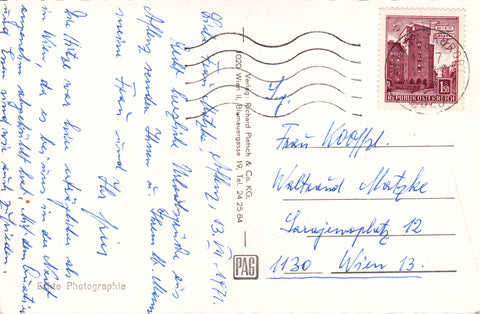 Liebe Frau Matzke, 13. VII. 1971.
Recht herzliche Urlaubsgrüße aus
Aflenz senden Ihnen u. Ihrem lb. Mann
meine Frau und Ihr
Die Hitze war heute erträglicher als
in Wien, da es hier in der Nacht
angenehm abgekühlt hat. Mit dem Quartier
und Essen sind wir auch zufrieden.
Echte Photographie
Verlag Richard Pietsch & Co. KG.
1020 Wien II, Blumauergasse 19, Tel. 24 25 84
PAG
REPUBLIK ÖSTERREICH
1.50
Frau
Waltraud Matzke
Sarajewoplatz 12
1130 Wien 13.